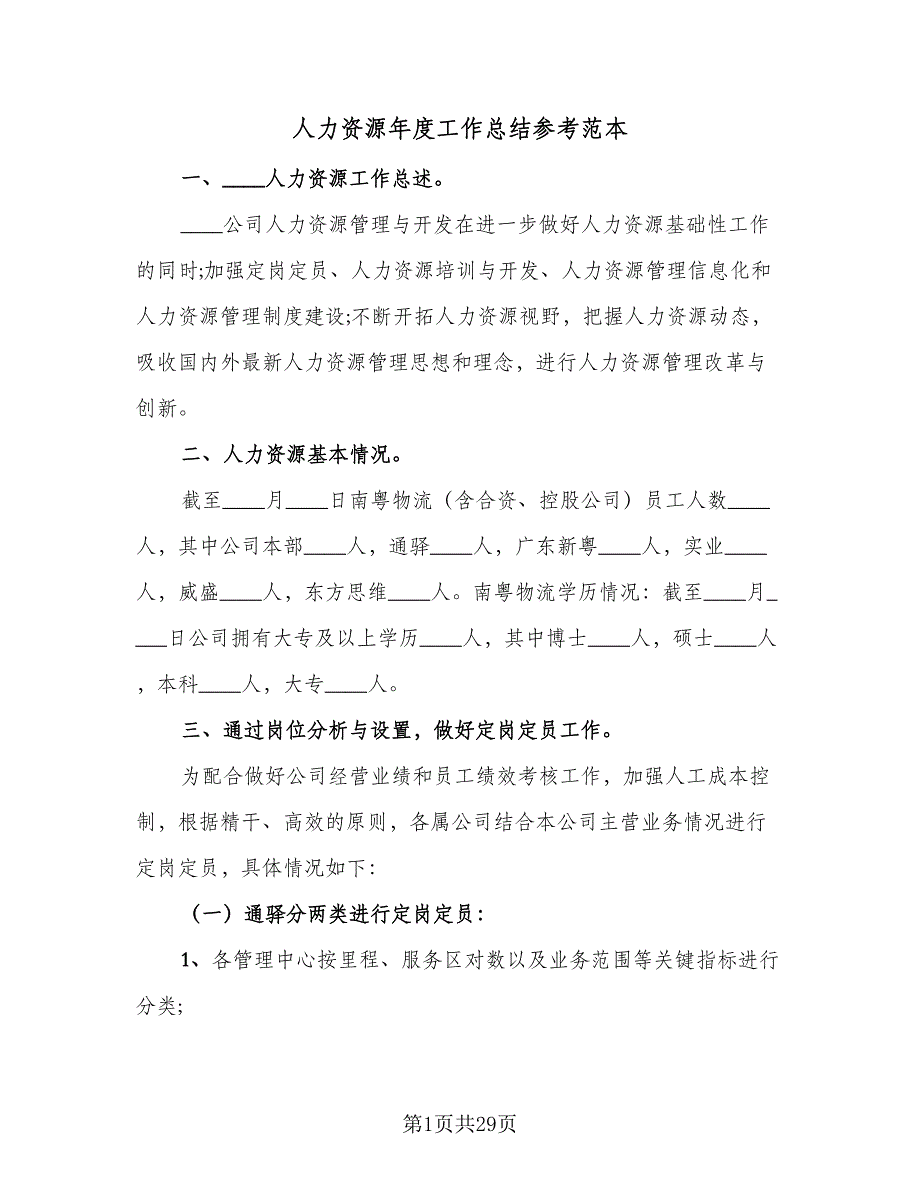 人力资源年度工作总结参考范本
一、____人力资源工作总述。
____公司人力资源管理与开发在进一步做好人力资源基础性工作
的同时;加强定岗定员、人力资源培训与开发、人力资源管理信息化和
人力资源管理制度建设;不断开拓人力资源视野，把握人力资源动态，
吸收国内外最新人力资源管理思想和理念，进行人力资源管理改革与
创新。
二、人力资源基本情况。
截至____月____日南粤物流（含合资、控股公司）员工人数____
人，其中公司本部____人，通驿____人，广东新粤____人，实业____
人，威盛____人，东方思维____人。南粤物流学历情况：截至____月_
___日公司拥有大专及以上学历____人，其中博士____人，硕士____人
，本科____人，大专____人。
三、通过岗位分析与设置，做好定岗定员工作。
为配合做好公司经营业绩和员工绩效考核工作，加强人工成本控
制，根据精干、高效的原则，各属公司结合本公司主营业务情况进行
定岗定员，具体情况如下：
（一）通驿分两类进行定岗定员：
1、各管理中心按里程、服务区对数以及业务范围等关键指标进行
分类;
第1页共29页